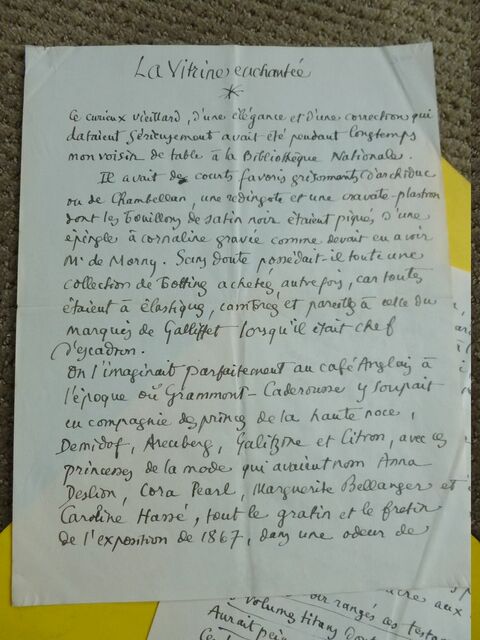 La Vitrine enchantée
Ce curieux vieillard, d'une élégance et d'une correction qui
dataient sérieusement avait été pendant longtemps
mon voisin de table à la Bibliothèque Nationale.
Il avait de courts favoris grisonnants d'archiduc
ou de Chambellan, une redingote et une cravate-plastron
dont les bouillons de satin noir étaient piqués d'une
épingle à cornaline gravée comme devait en avoir
Mr de Morny. Sans doute possédait-il toute une
collection de bottines achetées autrefois, car toutes
étaient à élastiques, cambrées et pareilles à celle du
marquis de Galliffet lorsqu'il était chef
d'escadron.
On l'imaginait parfaitement au café Anglais à
l'époque où Grammont-Caderousse y soupait
en compagnie des princes de la haute noce,
Demidof, Arenberg, Galitzine et Citron, avec ces
princesses de la mode qui avaient nom Anna
Deslion, Cora Pearl, Marguerite Bellanger et
Caroline Hassé, tout le gratin et le fretin
de l'exposition de 1867, dans une odeur de
aux
rangés ces
volumes titans
Aurait